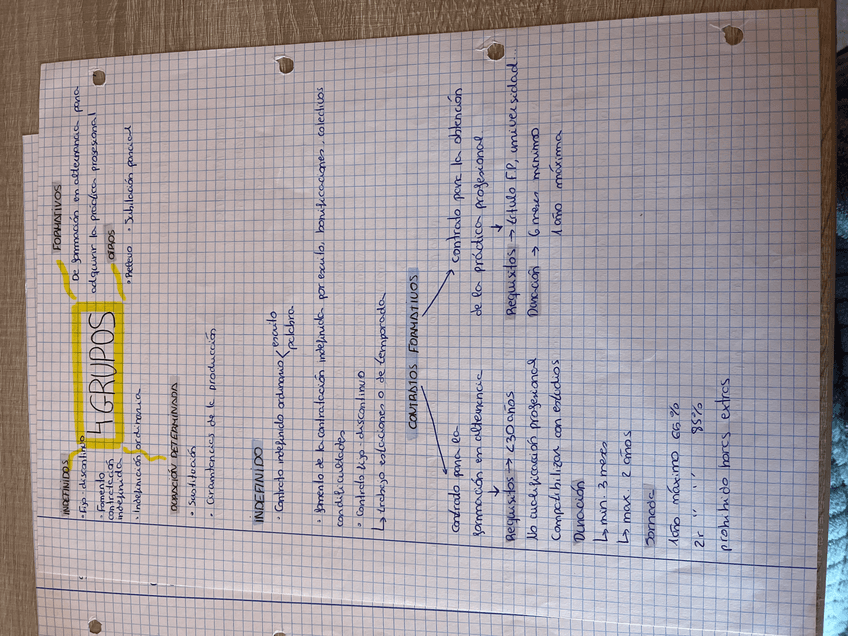 INDEFINIDOS
· Fijo-discontinuo
· Fomento
contratación
indefinida
· Indefinación ordinaria
4 GRUPOS
FORMATIVOS
De formación en alternancia para
adquirir la práctica profesional
OTROS
· Relevo · Jubilación parcial
DURACIÓN DETERMINADA
· Sustitución
· Circunstancias de la producción
INDEFINIDO
· Contrato indefinido ordinario < escrito
palabra
· fomento de la contratación indefinida por escrito, bonificaciones, colectivos
con dificultades
· Contrato fijo-discontinuo
↳ trabajo estaciones o de temporada
CONTRATOS FORMATIVOS
contrato para la
formación en alternancia
Requisitos → <30 años
No cualificación profesional
Compatibilizar con estudios
Duración
↳ min. 3 meses
↳ max. 2 años
Jornada
1 año máximo 65%
2r " " 85%
prohibido horas extras
contrato para la obtención
de la práctica profesional
Requisitos → título FP, universidad...
Duración → 6 meses mínimo
1 año máxima